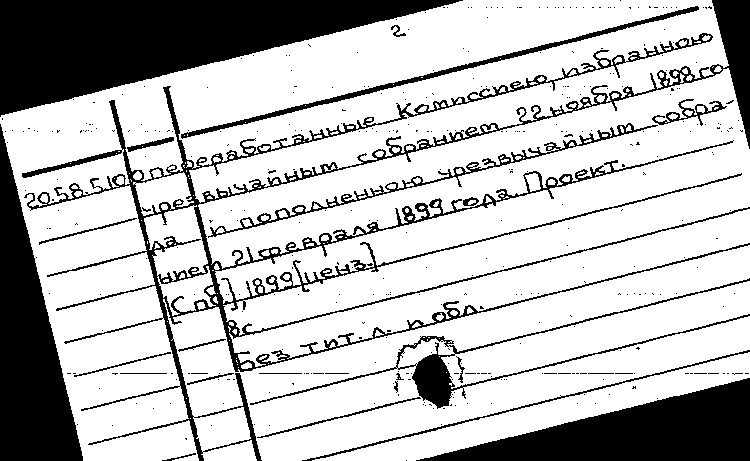 2
20.58.5100 переработанные Комиссиею, избранною
чрезвычайным собранием 22 ноября 1898 го-
да и пополненною чрезвычайным собра-
нием 21 февраля 1899 года. Проект.
[Спб.], 1899 [ценз.].
8с.
Без тит. л. и обл.